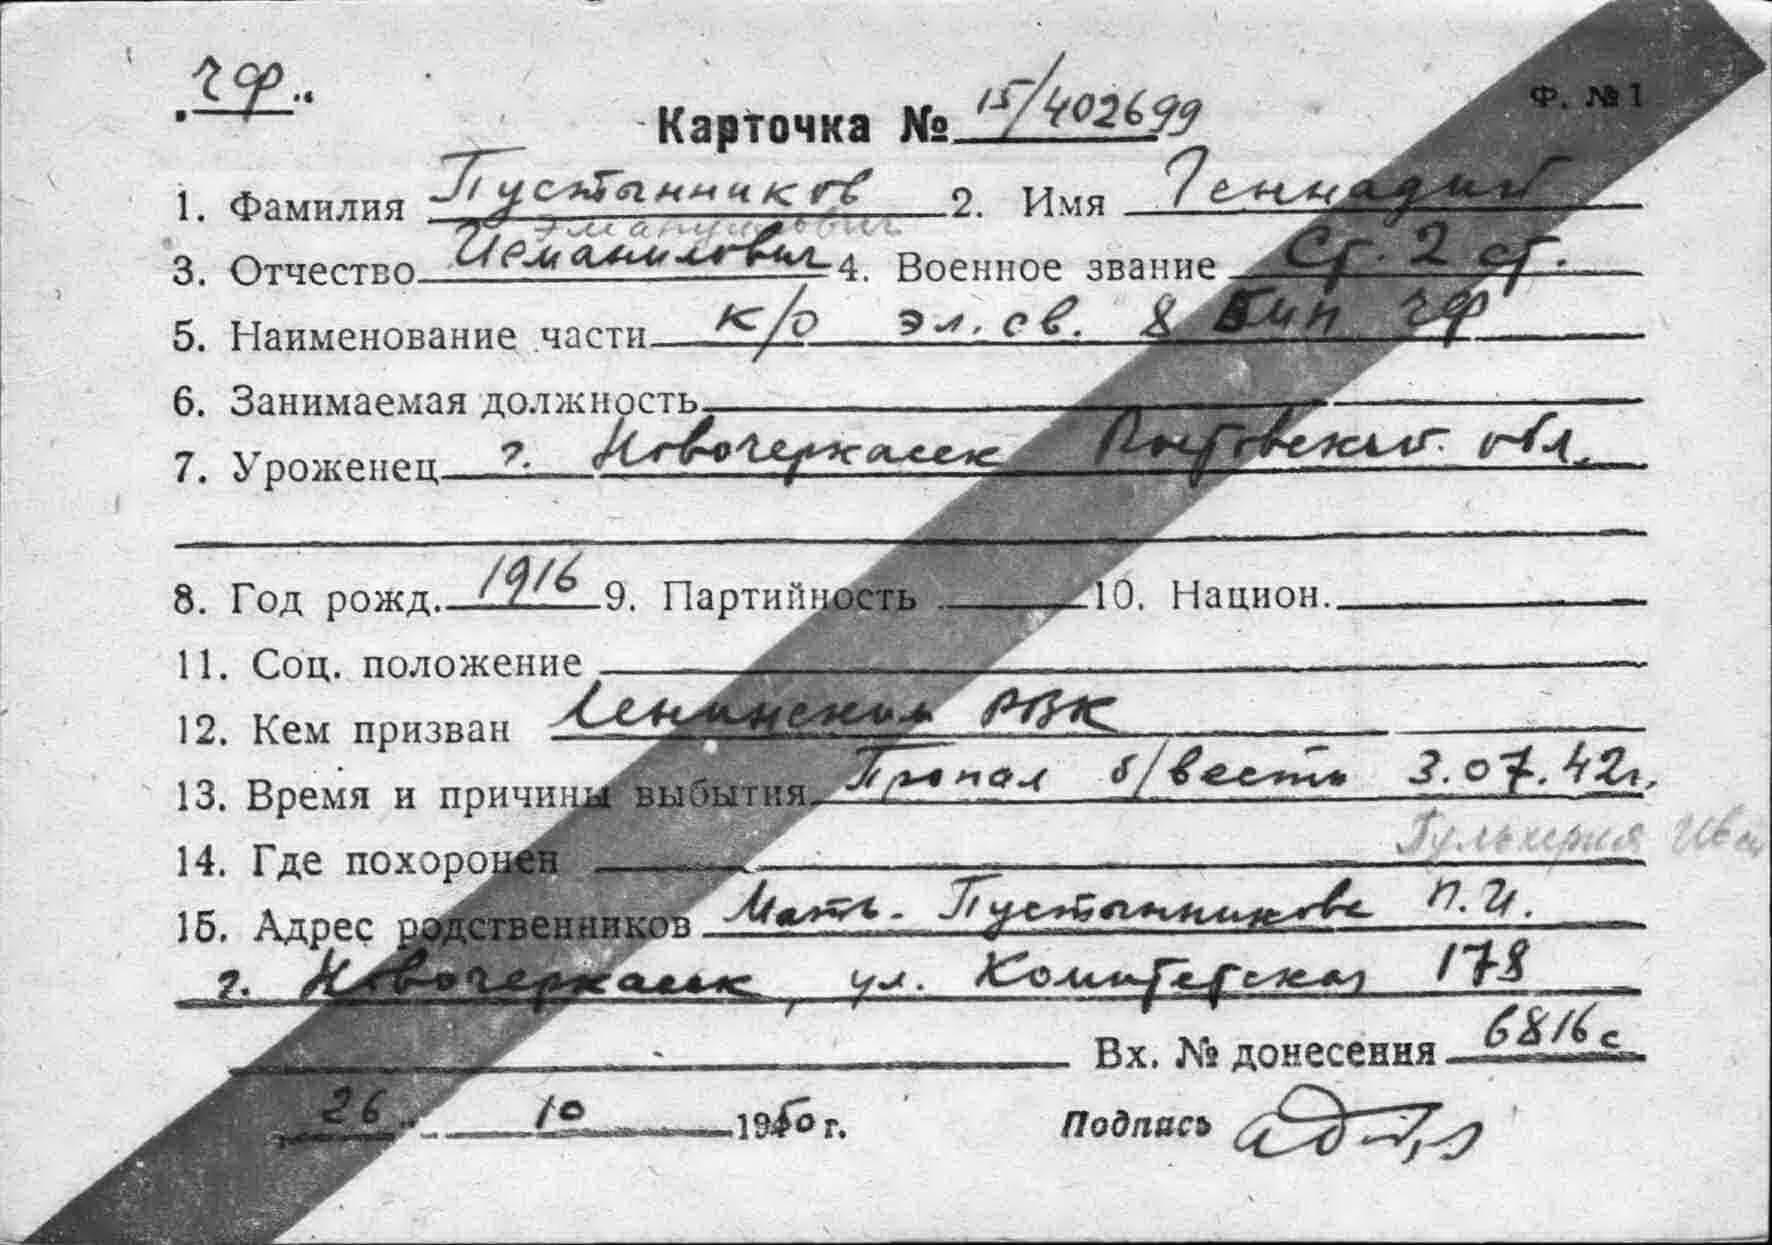 „ЧФ"
Ф. № 1
Карточка № 15/402699
1. Фамилия Пустынников 2. Имя Геннадий
Эмануилович
3. Отчество Исмаилович 4. Военное звание Ст. 2 ст.
5. Наименование части к/о эл. св. 8 БИП ЧФ
6. Занимаемая должность
7. Уроженец г. Новочеркасск Ростовской обл.
8. Год рожд. 1916 9. Партийность 10. Национ.
11. Соц. положение
12. Кем призван Ленинским РВК
13. Время и причины выбытия Пропал б/вести 3.07.42г.
Пульхерия
14. Где похоронен
15. Адрес родственников Мать - Пустынникова П.И.
г. Новочеркасск, ул. Комитетская 178
Вх. № донесения 6816с
26 10 1950 г. Подпись